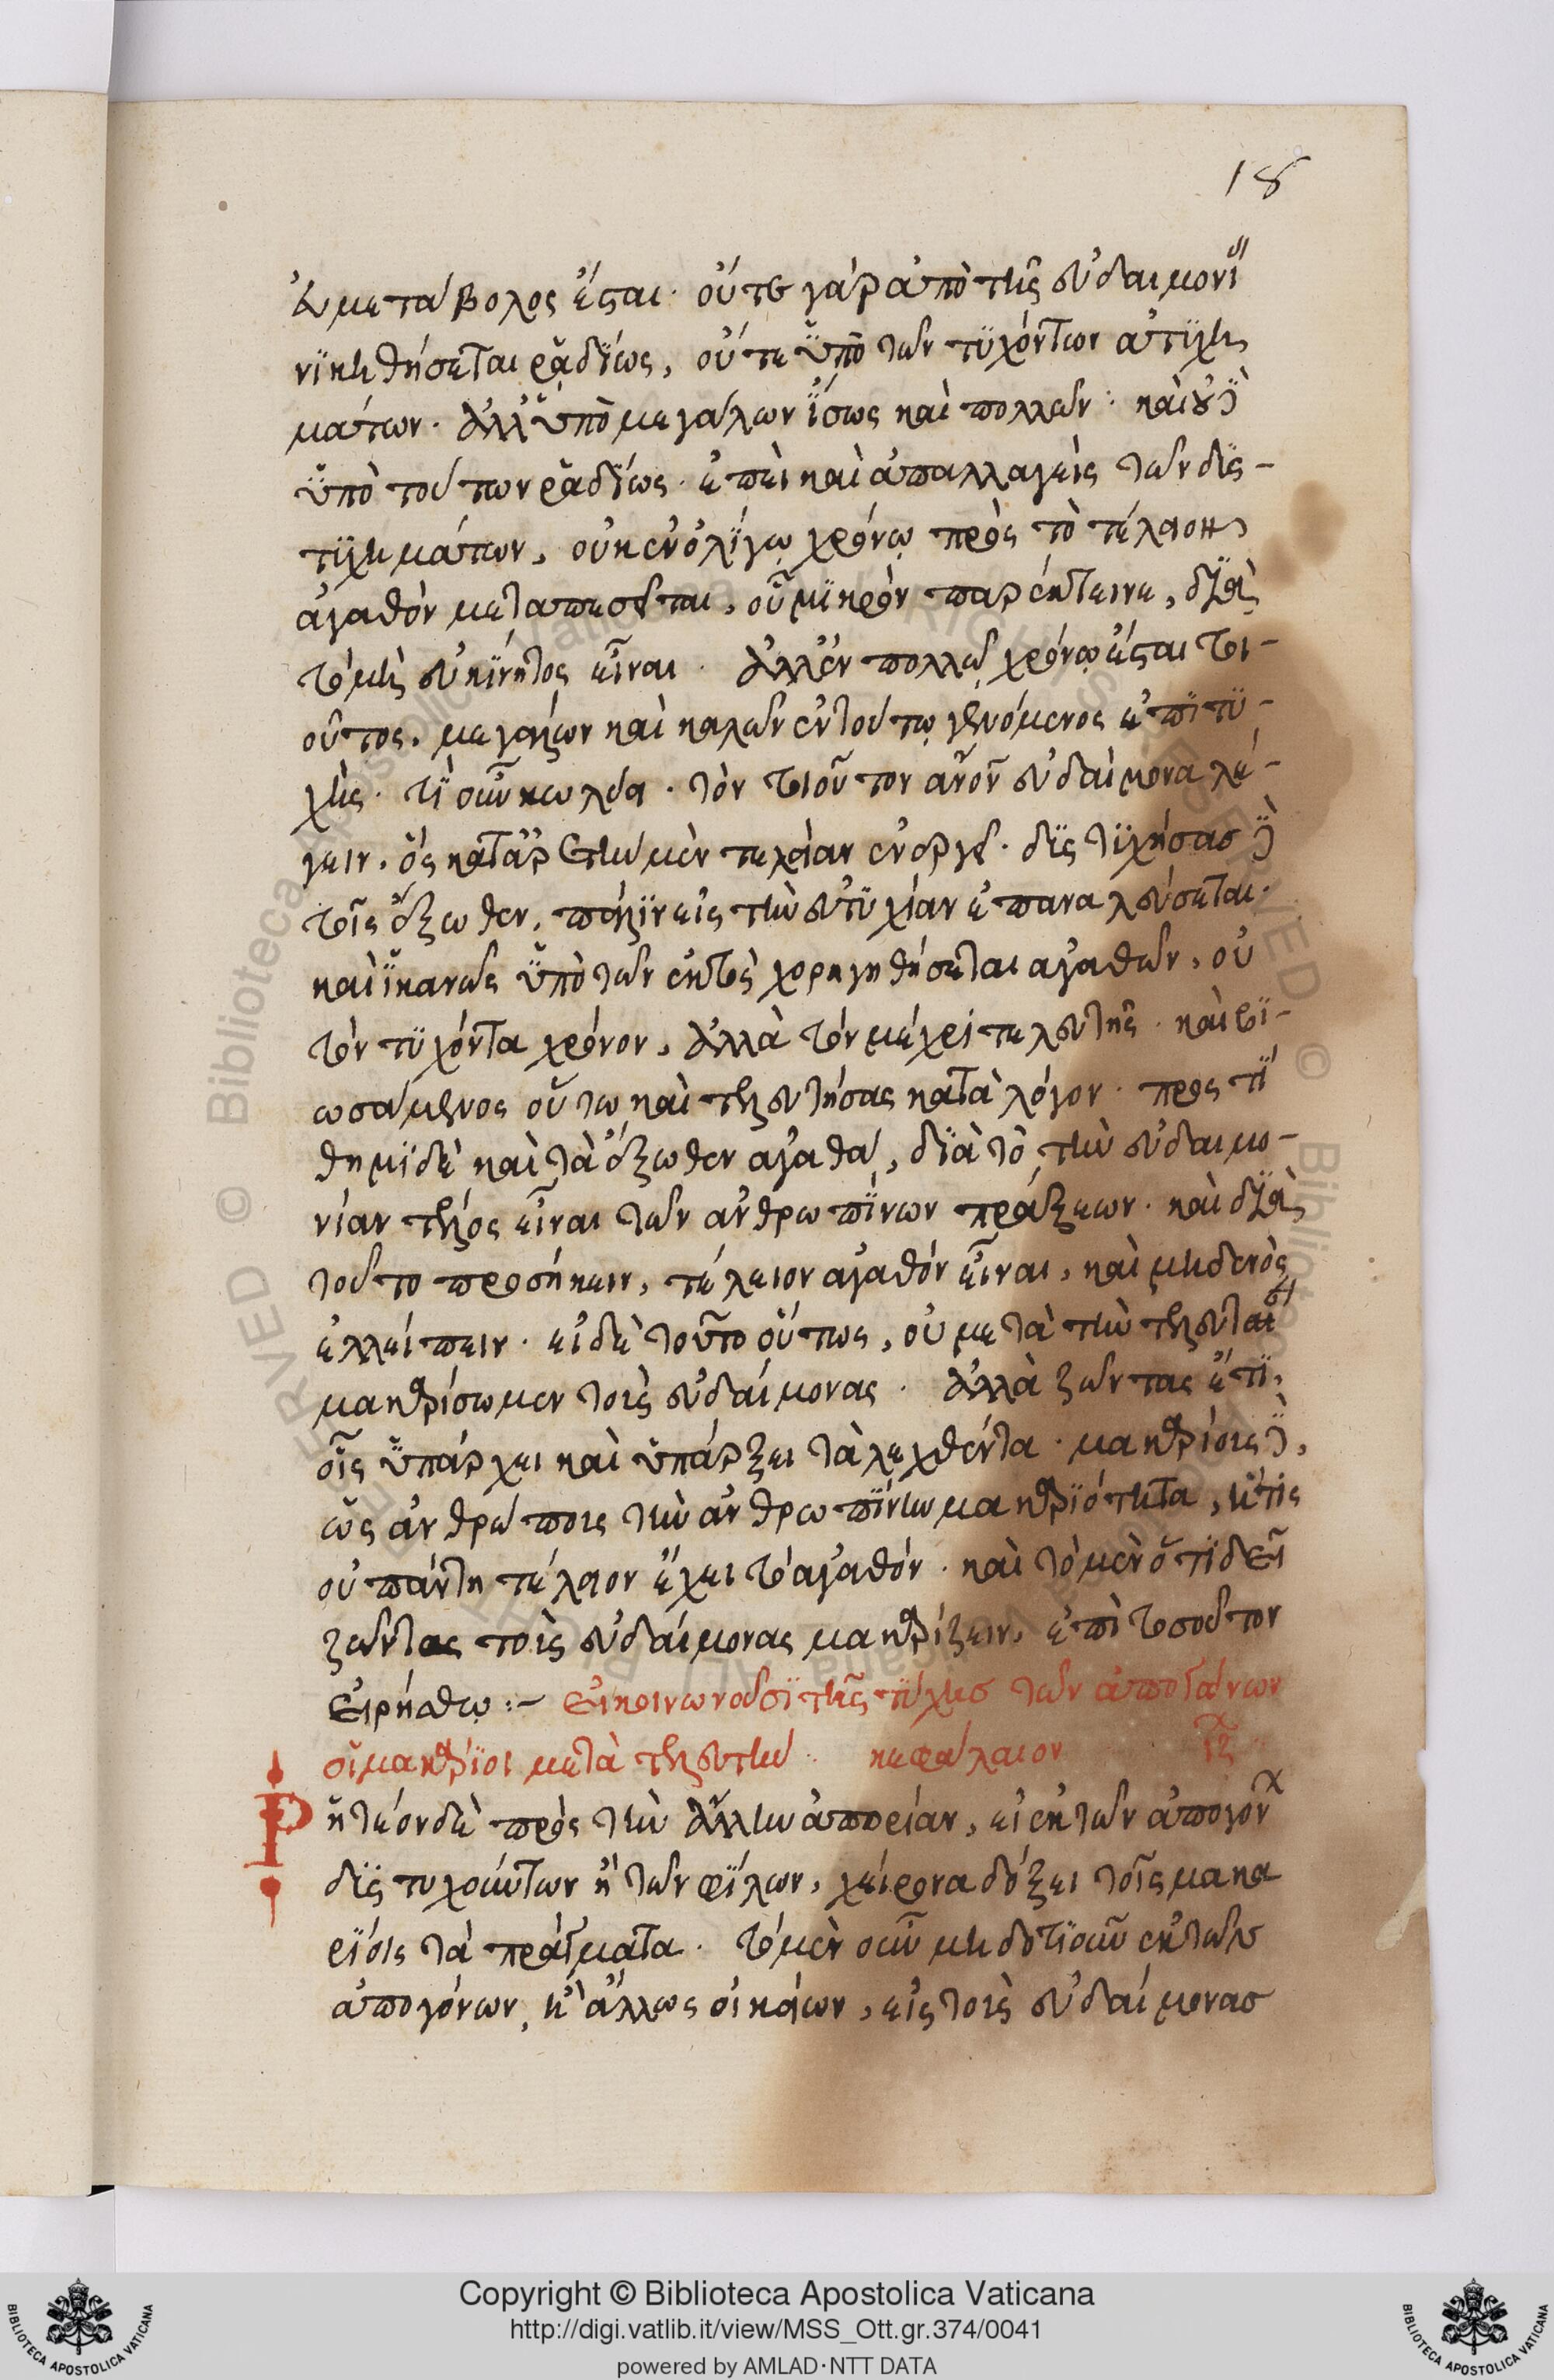 18
εὐμετάβολος ἔσται· οὔτε γὰρ ἀπὸ τῆς εὐδαιμονί
νϊκηθήσεται ῥᾳδΐως, οὔτε ὑπὸ τῶν τϋχόντων ἀτϋχη
μάτων· ἀλλ' ὑπὸ μεγάλων ἴσως καὶ πολλῶν· καὶ οὐδὲ
ὑπὸ τούτων ῥᾳδΐως· ἐπεὶ καὶ ἀπαλλαγεὶς τῶν δΐς-
τϋχημάτων, οὐκ ἐν ὀλΐγῳ χρόνῳ πρὸς τὸ τέλειον
ἀγαθὸν μεταπεσεῖται, οὗ μϊκρὸν παρέκτεινε, δϊὰ
τὸ μὴ εὐκΐνητος εἶναι· ἀλλ' ἐν πολλῷ χρόνῳ ἔσται τοι-
οῦτος, μεγάλων καὶ καλῶν ἐν τούτῳ γενόμενος ἐπϊτϋ-
χής· τί οὖν κωλύει· τὸν τοιοῦτον ἄνον εὐδαίμονα λέ-
γειν, ὃς κατ' ἀρετὴν μὲν τελείαν ἐνεργεῖ· δΐς τϋχήσας δὲ
τοῖς ἔξωθεν, πάλϊν εἰς τὴν εὐτϋχίαν ἐπαναλεύσεται·
καὶ ἱκανῶς ὑπὸ τῶν ἐκτὸς χορηγηθήσεται ἀγαθῶν, οὐ
τὸν τϋχόντα χρόνον, ἀλλὰ τὸν μέχρι τελευτῆς· καὶ βϊ-
ωσόμενος οὕτω καὶ τελευτήσας κατὰ λόγον· προς τί
θημϊ δὲ καὶ τὰ ἔξωθεν ἀγαθά, δϊὰ τὸ τὴν εὐδαιμο-
νίαν τέλος εἶναι τῶν ἀνθρωπΐνων πράξεων· καὶ δϊὰ
τοῦτο προσήκειν, τέλειον ἀγαθὸν εἶναι, καὶ μηδενὸς
ἐλλείπειν· εἰ δὲ τοῦτο οὕτως, οὐ μετὰ τὴν τελευταί
μακαρίσωμεν τοὺς εὐδαίμονας· ἀλλὰ ζῶντας ἔτϊ,
οἷς ὑπάρχει καὶ ὑπάρξει τὰ λεχθέντα· μακαρίους δὲ,
ὡς ἀνθρώποις τὴν ἀνθρωπΐνην μακαρϊότητα, ἥτις
οὐ πάντη τέλειον ἔχει τὸ ἀγαθόν· καὶ τὸ μὲν ὅτϊ δεῖ
ζῶντας τοὺς εὐδαίμονας μακαρίζειν, ἐπὶ τοσοῦτον
εἰρήσθω:– εἰ κοινωνοῦσϊ τῆς τύχης τῶν ἀπογόνων
οἱ μακάρϊοι μετὰ τελευτήν·· κεφάλαιον ιζ··
Ρητέον δὲ πρὸς τὴν ἄλλην ἀπορίαν, εἰ ἐκ τῶν ἀπογόν
δΐς τυχούντων ἢ τῶν φΐλων, χείρονα δόξει τοῖς μακα
ρϊοις τὰ πράγματα· τὸ μὲν οὖν μηδοτϊοῦν ἐκ τῶν
ἀπογόνων, ἢ ἄλλως οἰκείων, εἰς τοὺς εὐδαίμονας
Copyright © Biblioteca Apostolica Vaticana
http://digi.vatlib.it/view/MSS_Ott.gr.374/0041
powered by AMLAD·NTT DATA